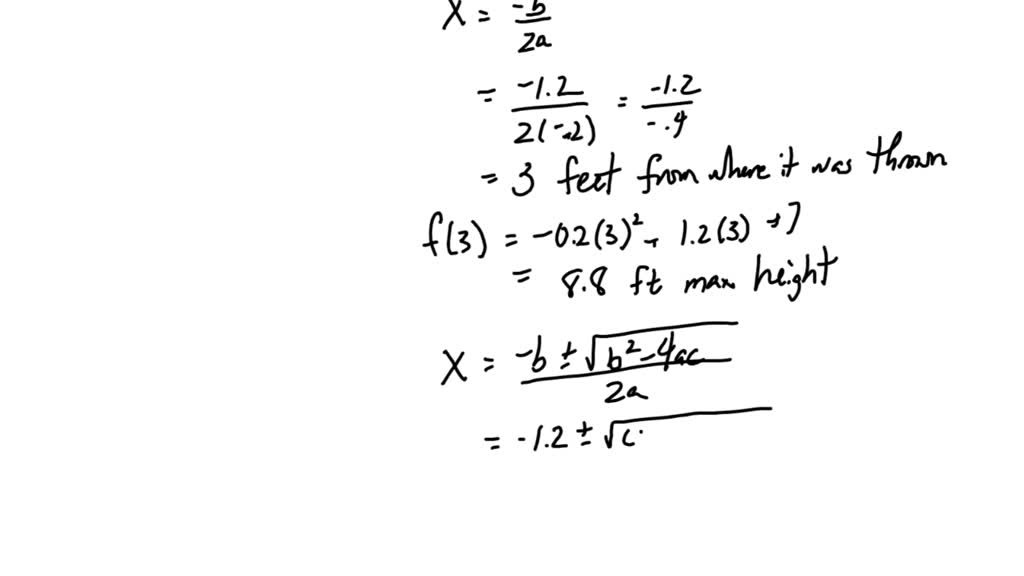 X = -b/2a
= -1.2/2(-.2) = -1.2/-.4
= 3 feet from where it was thrown
f(3) = -0.2(3)² + 1.2(3) + 7
= 8.8 ft max height
X = -b ± √b² - 4ac/2a
= -1.2 ± √(.